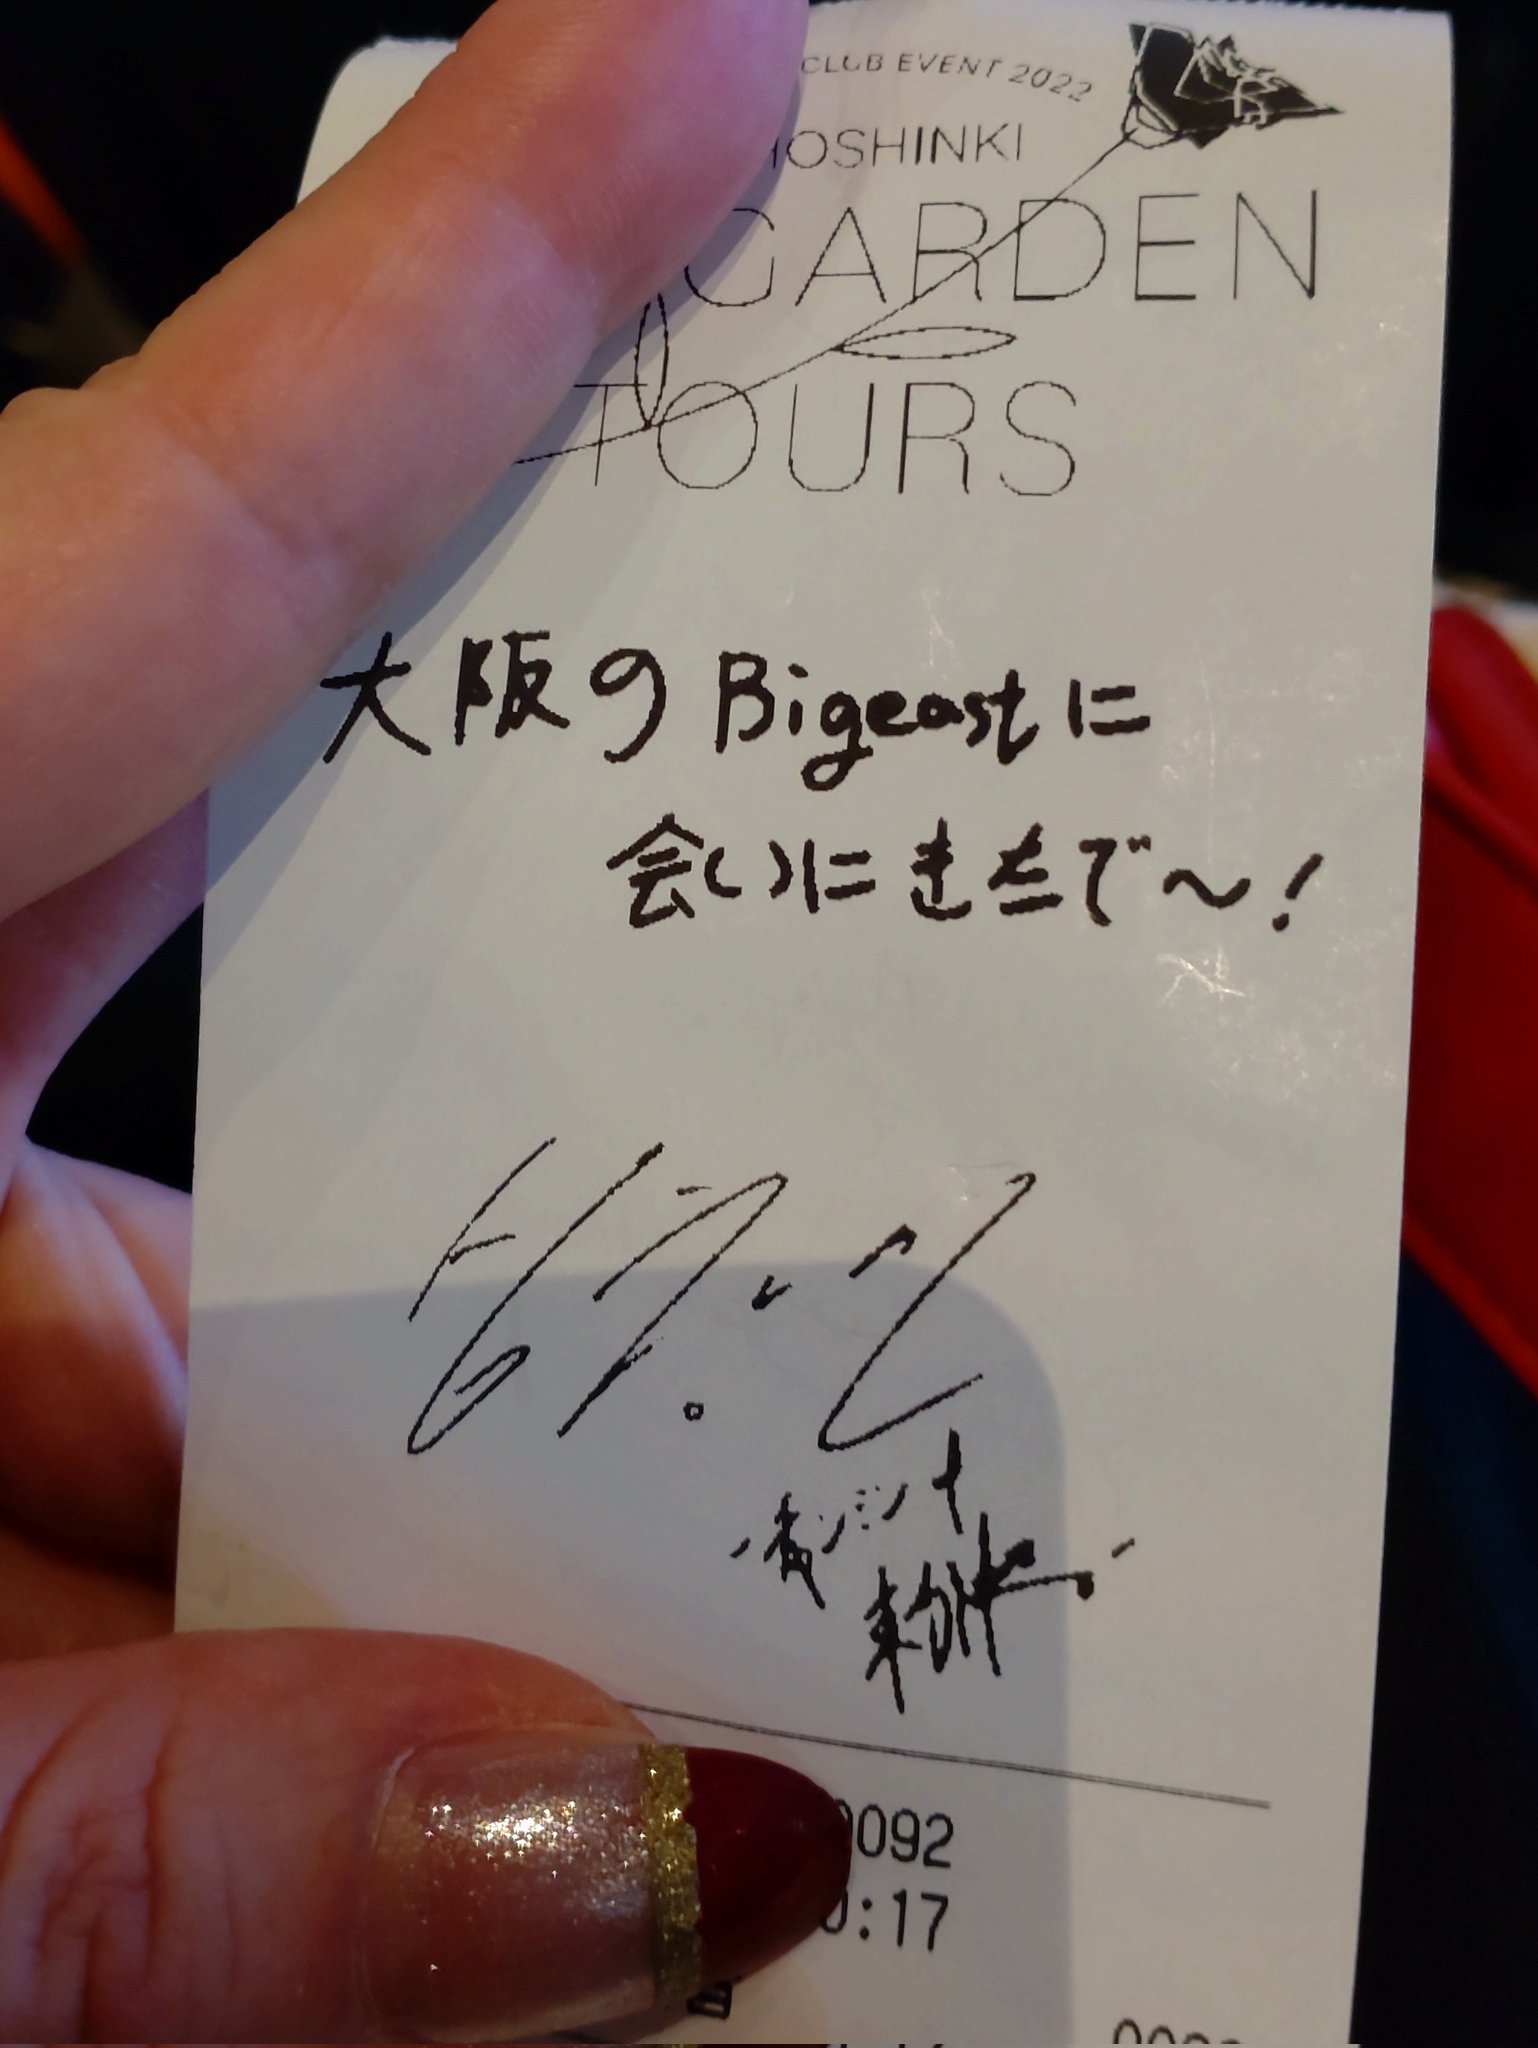 CLUB EVENT 2022
HOSHINKI
GARDEN
TOURS
大阪の Bigeastに
会いにきたで〜!
0092
0:17